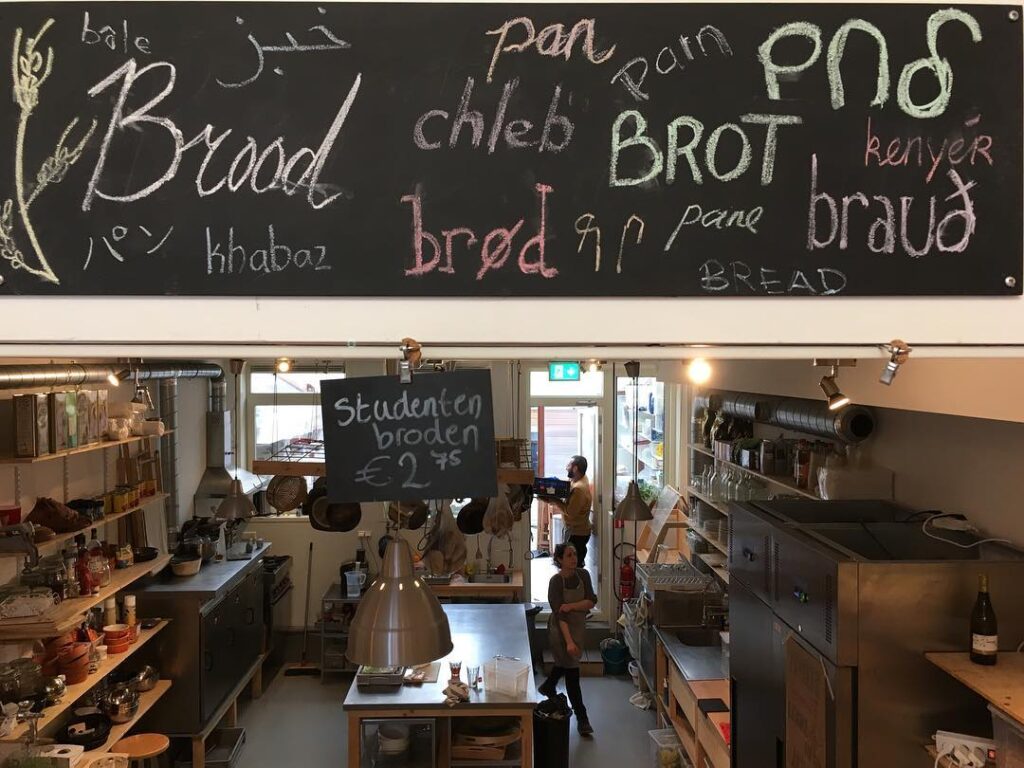 bâle
خبز
pan
pain
Brood
chleb
BROT
kenyér
パン
khabaz
brød
paine
brauð
BREAD
Studenten
broden
€2 75